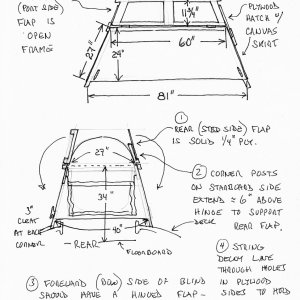 (PORT SIDE)
FLAP IS
"OPEN
FRAME"
11 3/4"
PLYWOOD
HATCH W/
CANVAS
SKIRT
27"
24"
60"
81"
①
REAR (STBD SIDE) FLAP
IS SOLID 1/4" PLY.
27"
② CORNER POSTS
ON STARBOARD SIDE
EXTEND ≈ 6" ABOVE
HINGE TO SUPPORT
REAR FLAP.
34"
3"
CLEAT
AT EACH
CORNER
46"
DECK
REAR
FLOORBOARD
④ STRING
DECOY LINE
THROUGH HOLES
IN PLYWOOD
SIDES TO HOLD
③ FORWARD (BOW) SIDE OF BLIND
SHOULD HAVE A HINGED FLAP.